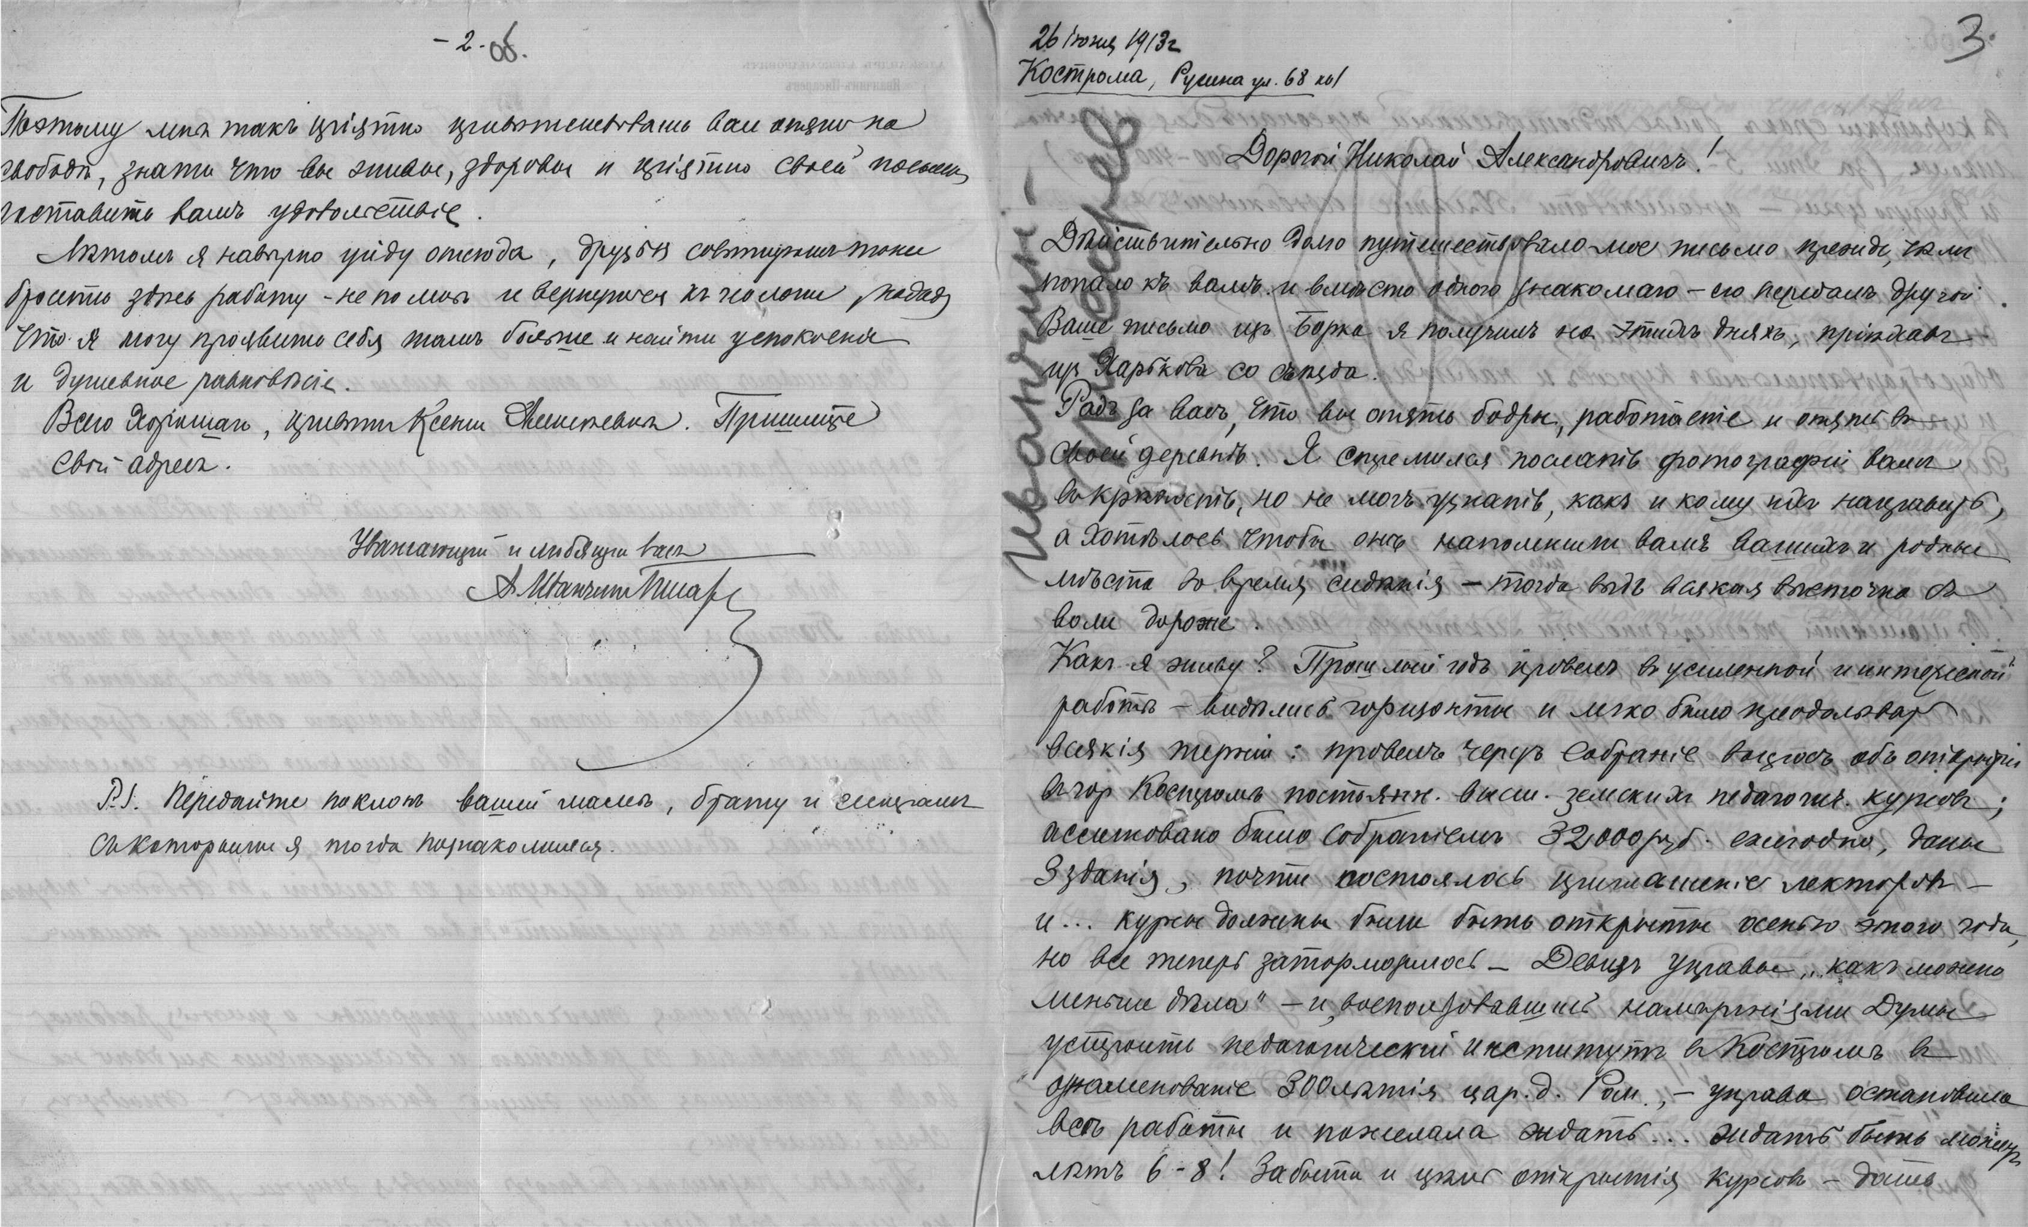 - 2. об.
Поэтому мнѣ такъ пріятно привѣтствовать вас опять на
свободѣ, знать что вы живы, здоровы и пріятно своей
доставить вамъ удовольствіе.
Лѣтомъ я навѣрно уйду отсюда, друзья совѣтуютъ
бросить здѣсь работу - не по мнѣ и вернуться къ геологіи,
что я могу проявить себя тамъ больше и найти успокоенія
и душевное равновѣсіе.
Всего хорошаго, привѣтъ Ксеніи. Пришлите
свой адресъ.
Уважающій и любящій васъ
А. Иванчинъ Писар
P.S. Передайте поклонъ вашей мамѣ, брату и сестрамъ
съ которыми я тогда познакомился.
3.
26 іюня 1913 г
Кострома, Русина ул. 68 кв 1
Иванчин-
Писарев
Дорогой Николай Александровичъ!
Дѣйствительно долго путешествовало мое письмо прежде, чѣмъ
попало къ вамъ и вмѣсто одного знакомаго - его передалъ другой.
Ваше письмо изъ Борка я получилъ на этихъ дняхъ, пріѣхавъ
изъ Харькова со съѣзда.
Радъ за васъ, что вы опять бодры, работаете и опять въ
своей деревнѣ. Я стремился послать фотографіи вамъ
въ крѣпость, но не могъ узнать, какъ и кому ихъ направить,
а хотѣлось чтобы онѣ напомнили вамъ вашихъ и родныя
мѣста во время сидѣнія - тогда вѣдь всякая вѣсточка съ
воли дороже.
Какъ я живу? Прошлый годъ провелъ въ усиленной и интересной
работѣ - видѣлись горизонты и легко было преодолѣвать
всякія терніи: провелъ черезъ собраніе вопросъ объ открытіи
въ гор Костромѣ постоянн. высш. земскихъ педагогич. курсовъ;
ассигновано было собраніемъ 32000 руб. ежегодно, даны
3 зданія, почти состоялось приглашеніе лекторовъ -
и... курсы должны были быть открыты осенью этого года,
но все теперь затормозилось - Девизъ управы „какъ можно
меньше дѣла" - и, воспользовавшись намѣреніями Думы
устроить педагогическій институтъ въ Костромѣ въ
ознаменованіе 300лѣтія цар. д. Ром., - управа остановила
всѣ работы и пожелала ждать... ждать быть можетъ
лѣтъ 6 - 8! Забыта и цѣль открытія курсовъ - дать